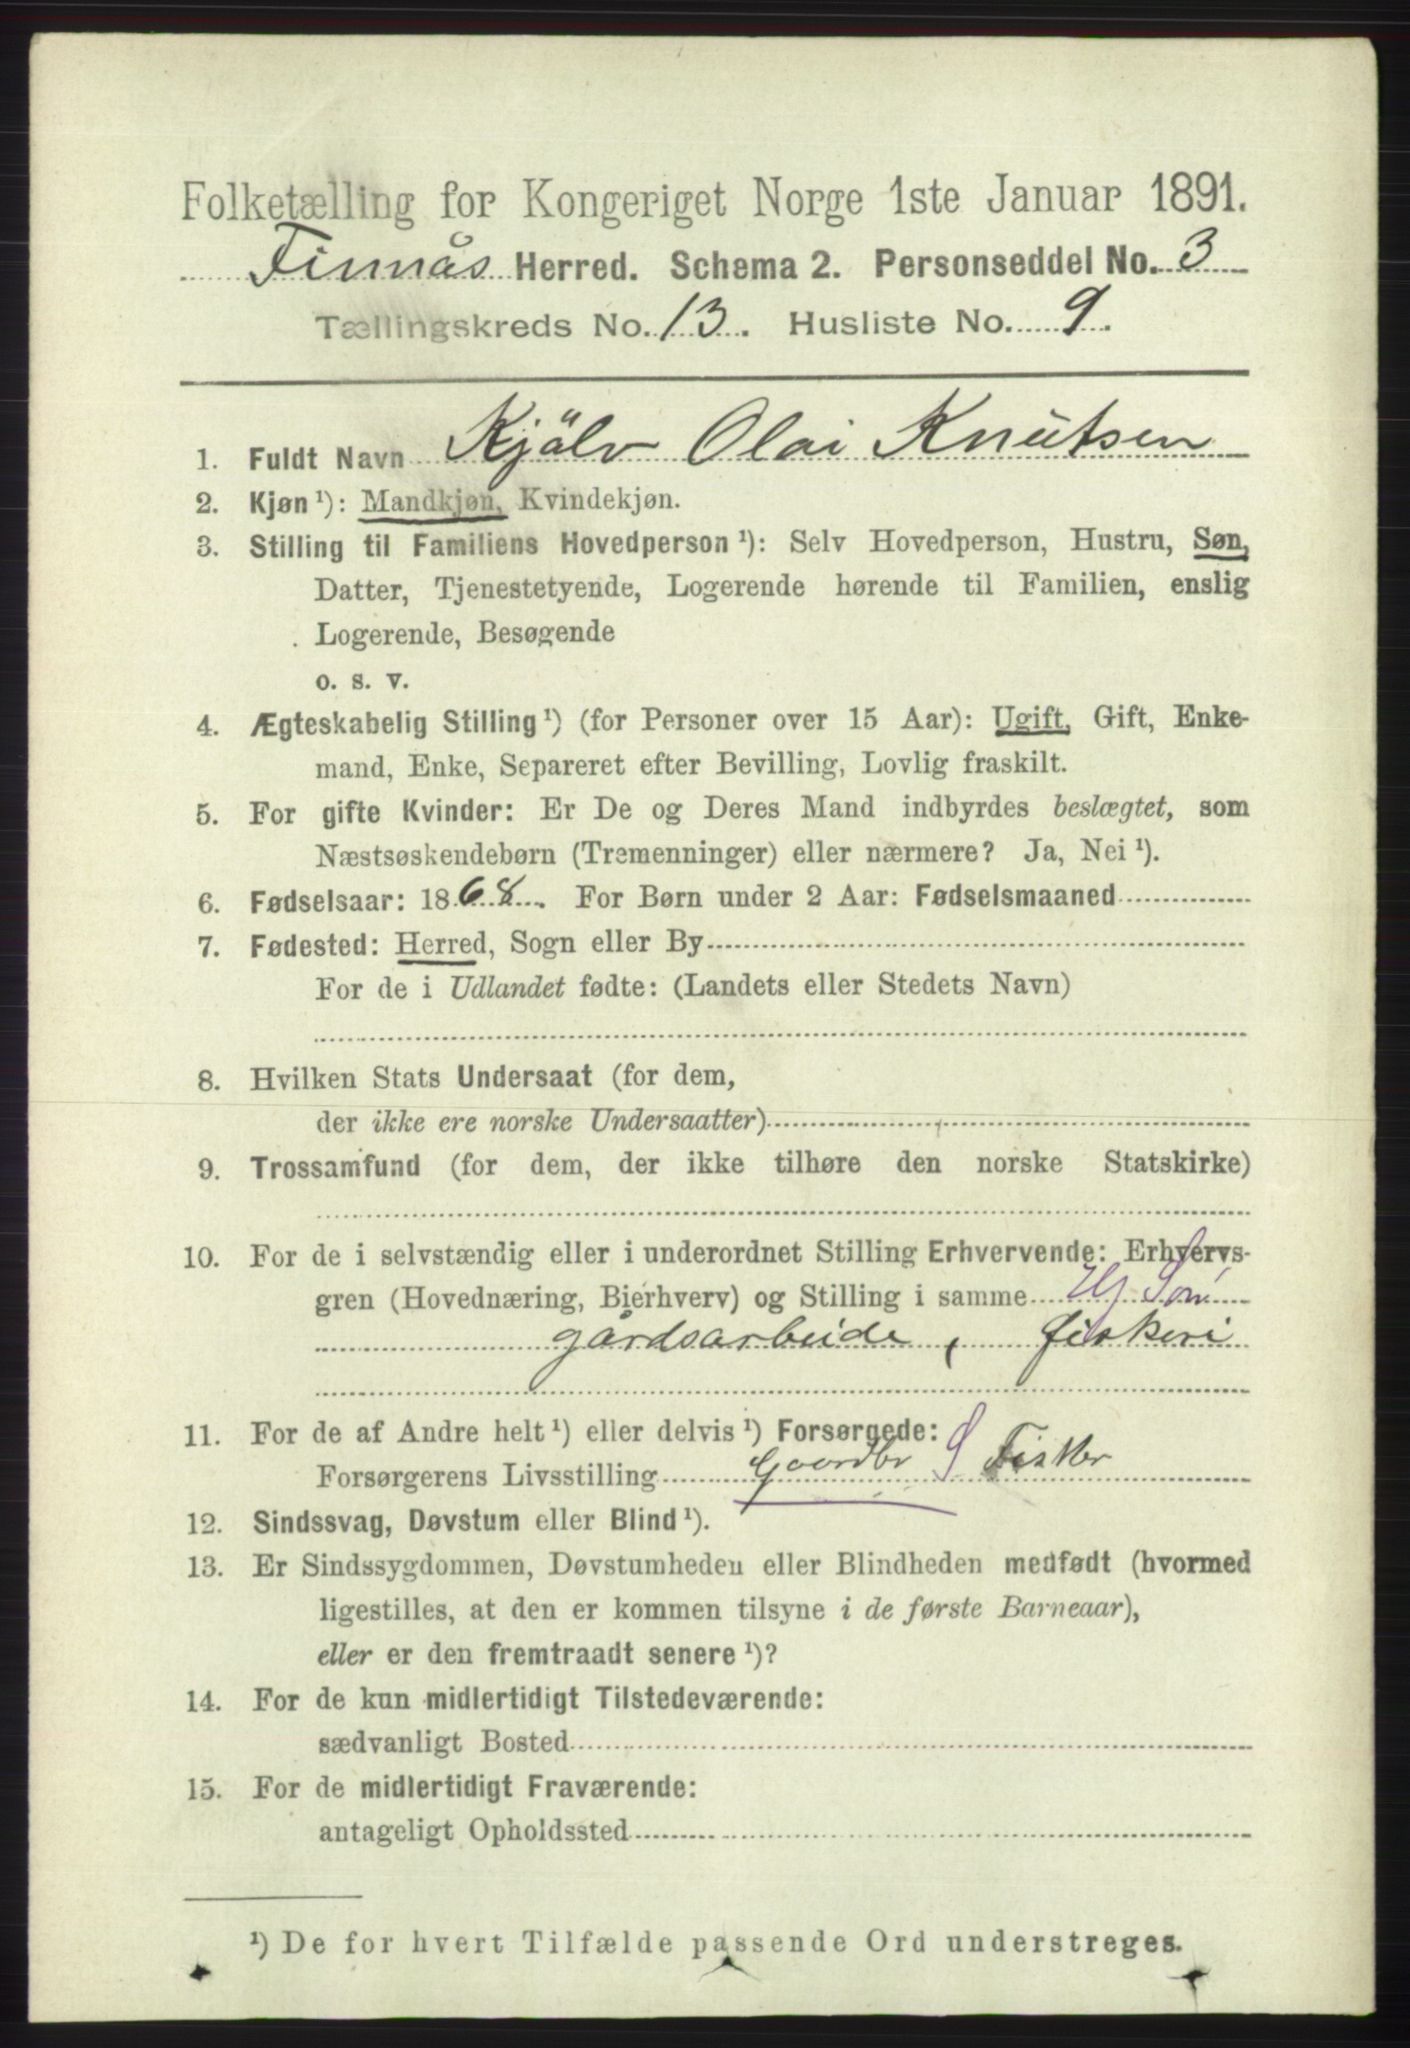 Folketælling for Kongeriget Norge 1ste Januar 1891.
Finnås Herred. Schema 2. Personseddel No. 3
Tællingskreds No. 13. Husliste No. 9.
1. Fuldt Navn Kjölv Olai Knutsen
2. Kjøn ¹): Mandkjøn, Kvindekjøn.
3. Stilling til Familiens Hovedperson ¹): Selv Hovedperson, Hustru, Søn,
Datter, Tjenestetyende, Logerende hørende til Familien, enslig
Logerende, Besøgende
o. s. v.
4. Ægteskabelig Stilling ¹) (for Personer over 15 Aar): Ugift, Gift, Enke-
mand, Enke, Separeret efter Bevilling, Lovlig fraskilt.
5. For gifte Kvinder: Er De og Deres Mand indbyrdes beslægtet, som
Næstsøskendebørn (Tremenninger) eller nærmere? Ja, Nei ¹).
6. Fødselsaar: 1868. For Børn under 2 Aar: Fødselsmaaned
7. Fødested: Herred, Sogn eller By
For de i Udlandet fødte: (Landets eller Stedets Navn)
8. Hvilken Stats Undersaat (for dem,
der ikke ere norske Undersaatter)
9. Trossamfund (for dem, der ikke tilhøre den norske Statskirke)
10. For de i selvstændig eller i underordnet Stilling Erhvervende: Erhvervs-
gren (Hovednæring, Bierhverv) og Stilling i samme Hj Søn
gårdsarbeide, fiskeri
11. For de af Andre helt ¹) eller delvis ¹) Forsørgede:
Forsørgerens Livsstilling Gaardbr S Fisker
12. Sindssvag, Døvstum eller Blind ¹).
13. Er Sindssygdommen, Døvstumheden eller Blindheden medfødt (hvormed
ligestilles, at den er kommen tilsyne i de første Barneaar),
eller er den fremtraadt senere ¹)?
14. For de kun midlertidigt Tilstedeværende:
sædvanligt Bosted
15. For de midlertidigt Fraværende:
antageligt Opholdssted
¹) De for hvert Tilfælde passende Ord understreges.